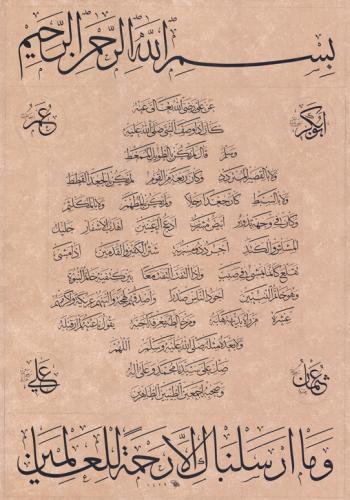 بسم الله الرحمن الرحيم
أبو بكر
عمر
عن علي رضي الله تعالى عنه
كان إذا وصف النبي صلى الله عليه
وسلم قال لم يكن بالطويل الممغط
ولا بالقصير المتردد وكان ربعة من القوم لم يكن بالجعد القطط
ولا بالسبط كان جعدا رجلا ولم يكن بالمطهم ولا بالمكلثم
وكان في وجهه تدوير أبيض مشرب أدعج العينين أهدب الأشفار جليل
المشاش والكتد أجرد ذو مسربة شثن الكفين والقدمين إذا مشى
تقلع كأنما يمشي في صبب وإذا التفت التفت معا بين كتفيه خاتم النبوة
وهو خاتم النبيين أجود الناس صدرا وأصدقهم لهجة وألينهم عريكة وأكرمهم
عشرة من رآه بديهة هابه ومن خالطه معرفة أحبه يقول ناعته لم أر قبله
ولا بعده مثله صلى الله عليه وسلم اللهم
صل على سيدنا محمد وعلى آله
وصحبه أجمعين الطيبين الطاهرين
عثمان
علي
وما أرسلناك إلا رحمة للعالمين